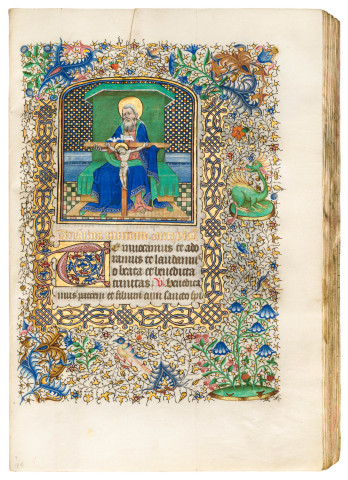 Te invocamus te ado
ramus te laudamus
o beata et benedicta
trinitas. V. Benedica
mus patrem et filium cum sancto spi